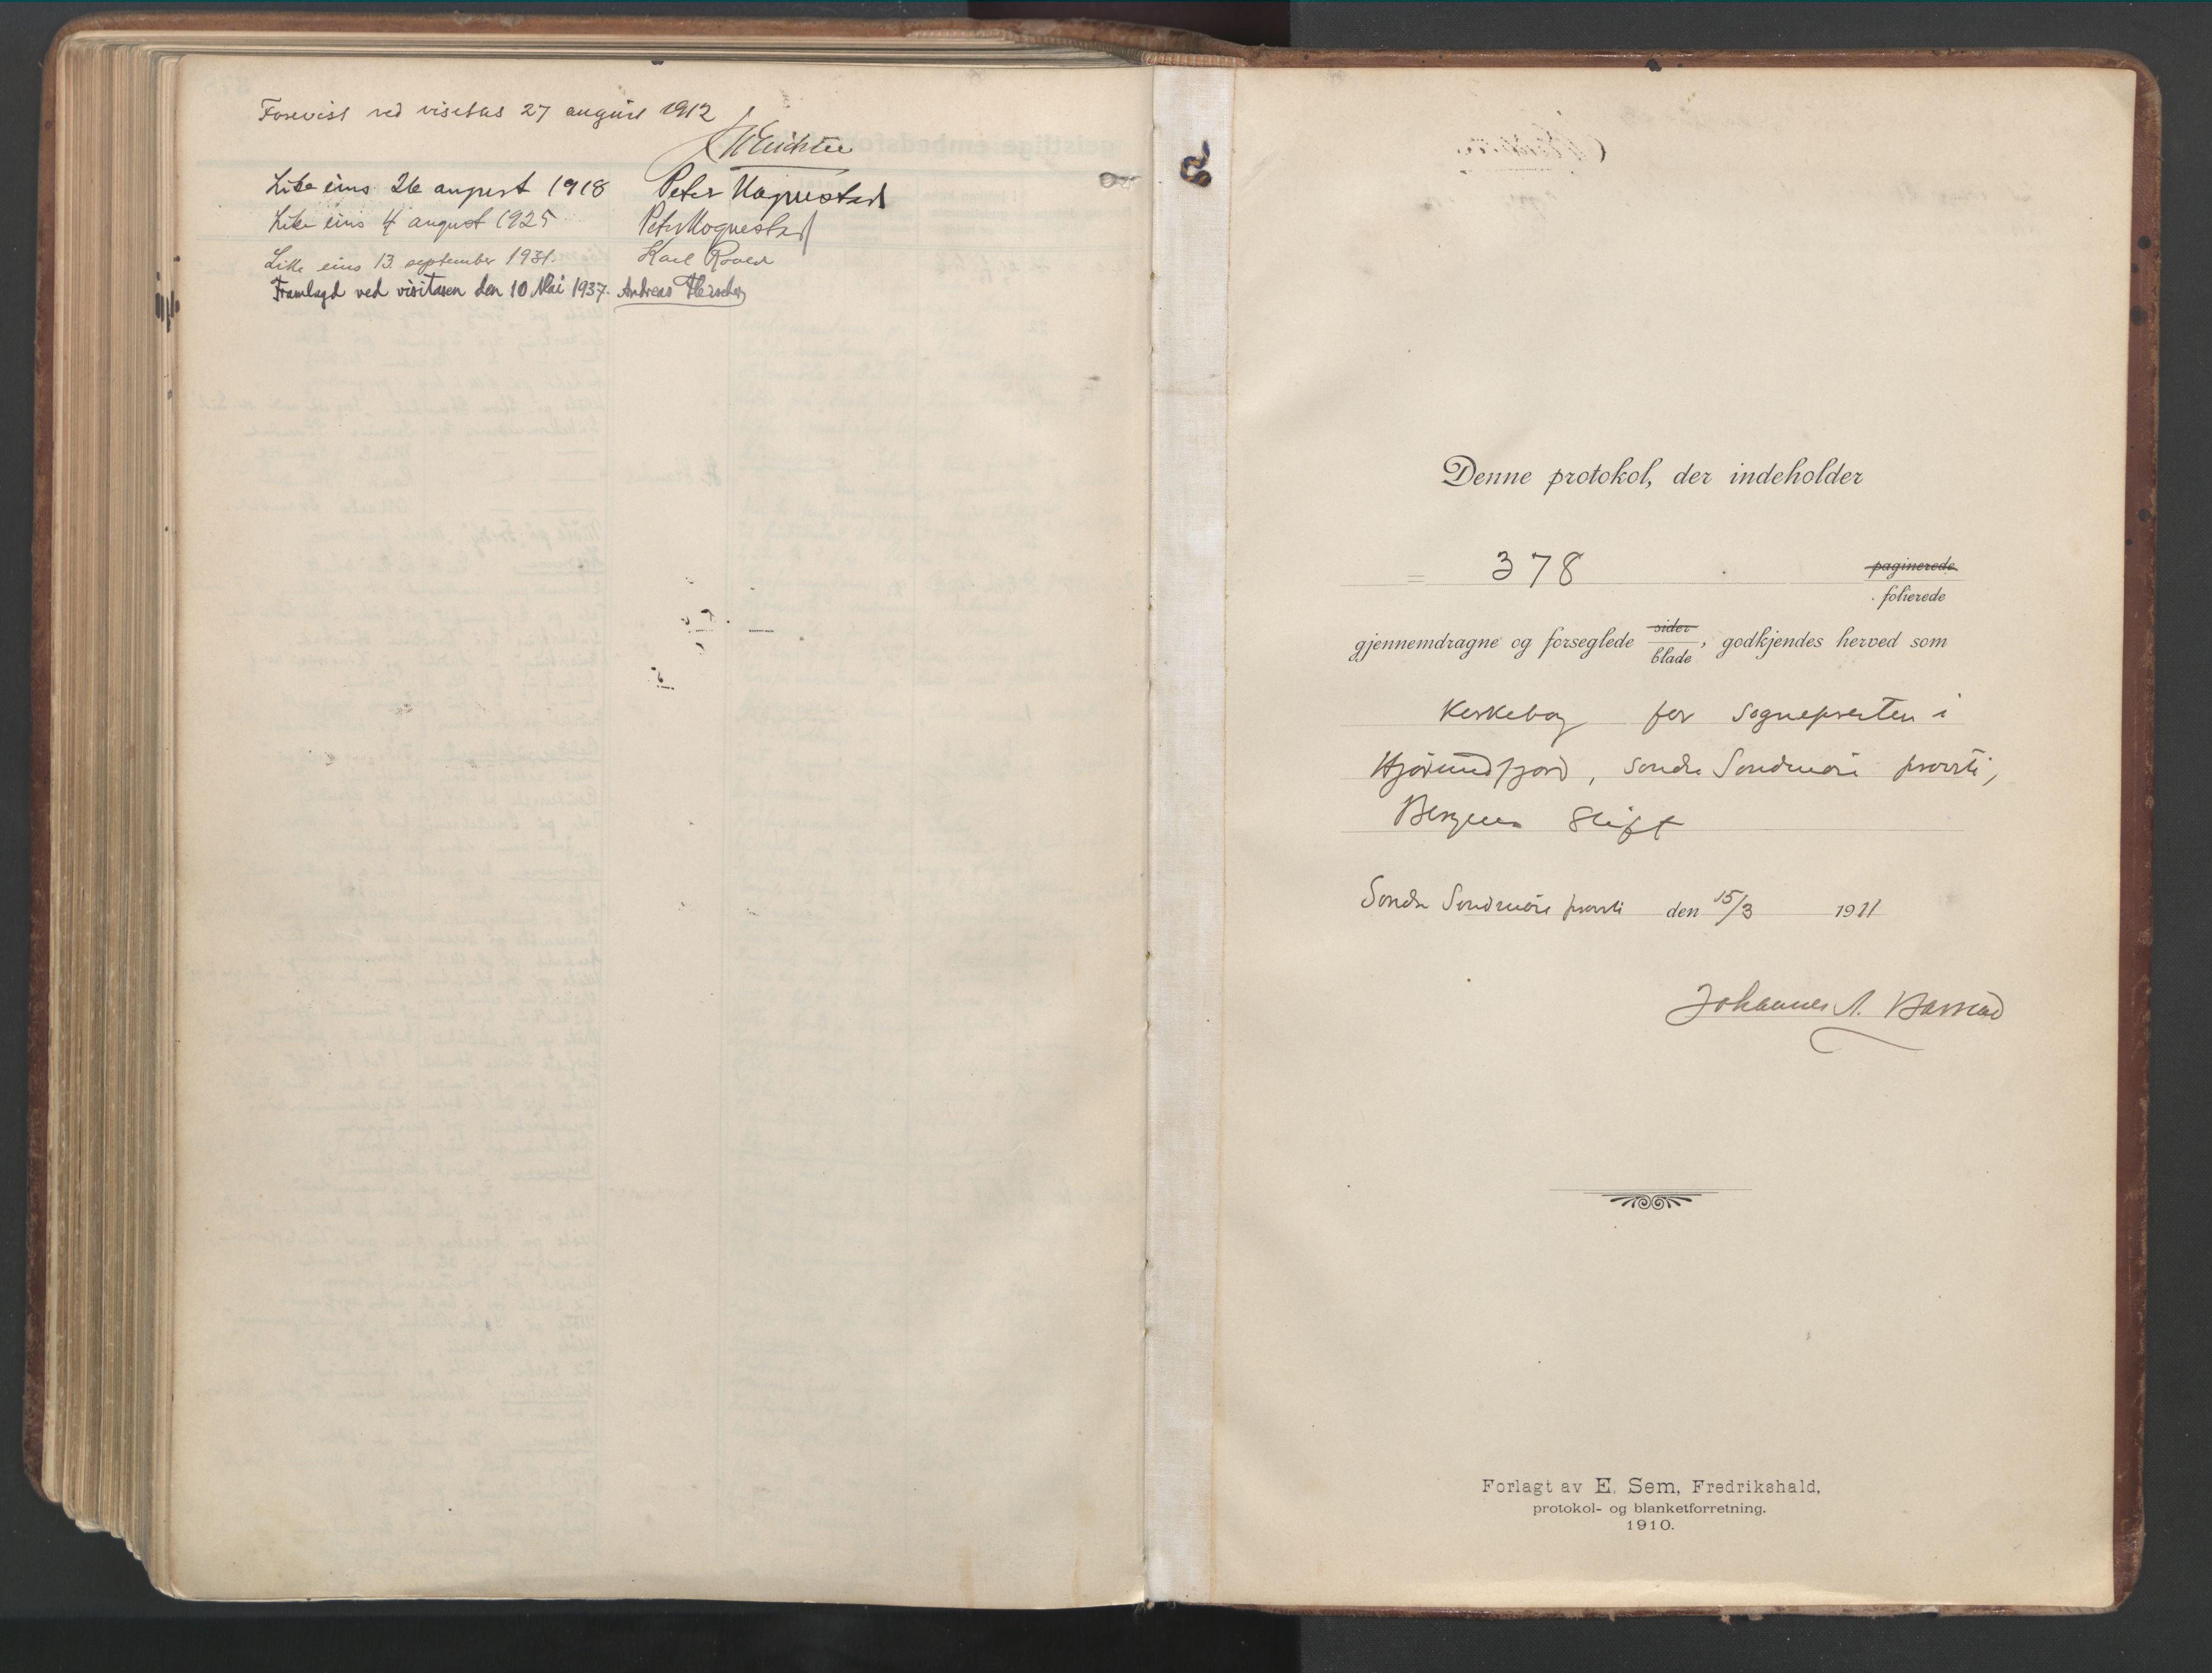 Forevist ved visitas 27 august 1912
Like eins 26 august 1918 Peter Hognestad
Like eins 4 august 1925 Peter Hognestad
Like eins 13. september 1931. Karl
Framlagd ved visitasen den 10 Mai 1937. Andreas Fleischer
Denne protokol, der indeholder
= 378 paginerede
folierede
gjennemdragne og forseglede sider
blade, godkjendes herved som
Kirkebog for Sognepresten i
Hjørundfjord, Søndre Søndmøre provsti,
Bergens Stift
Søndre Søndmøre provsti den 15/3 1911
Johannes A. Barstad
Forlagt av E. Sem, Fredrikshald,
protokol- og blanketforretning.
1910.